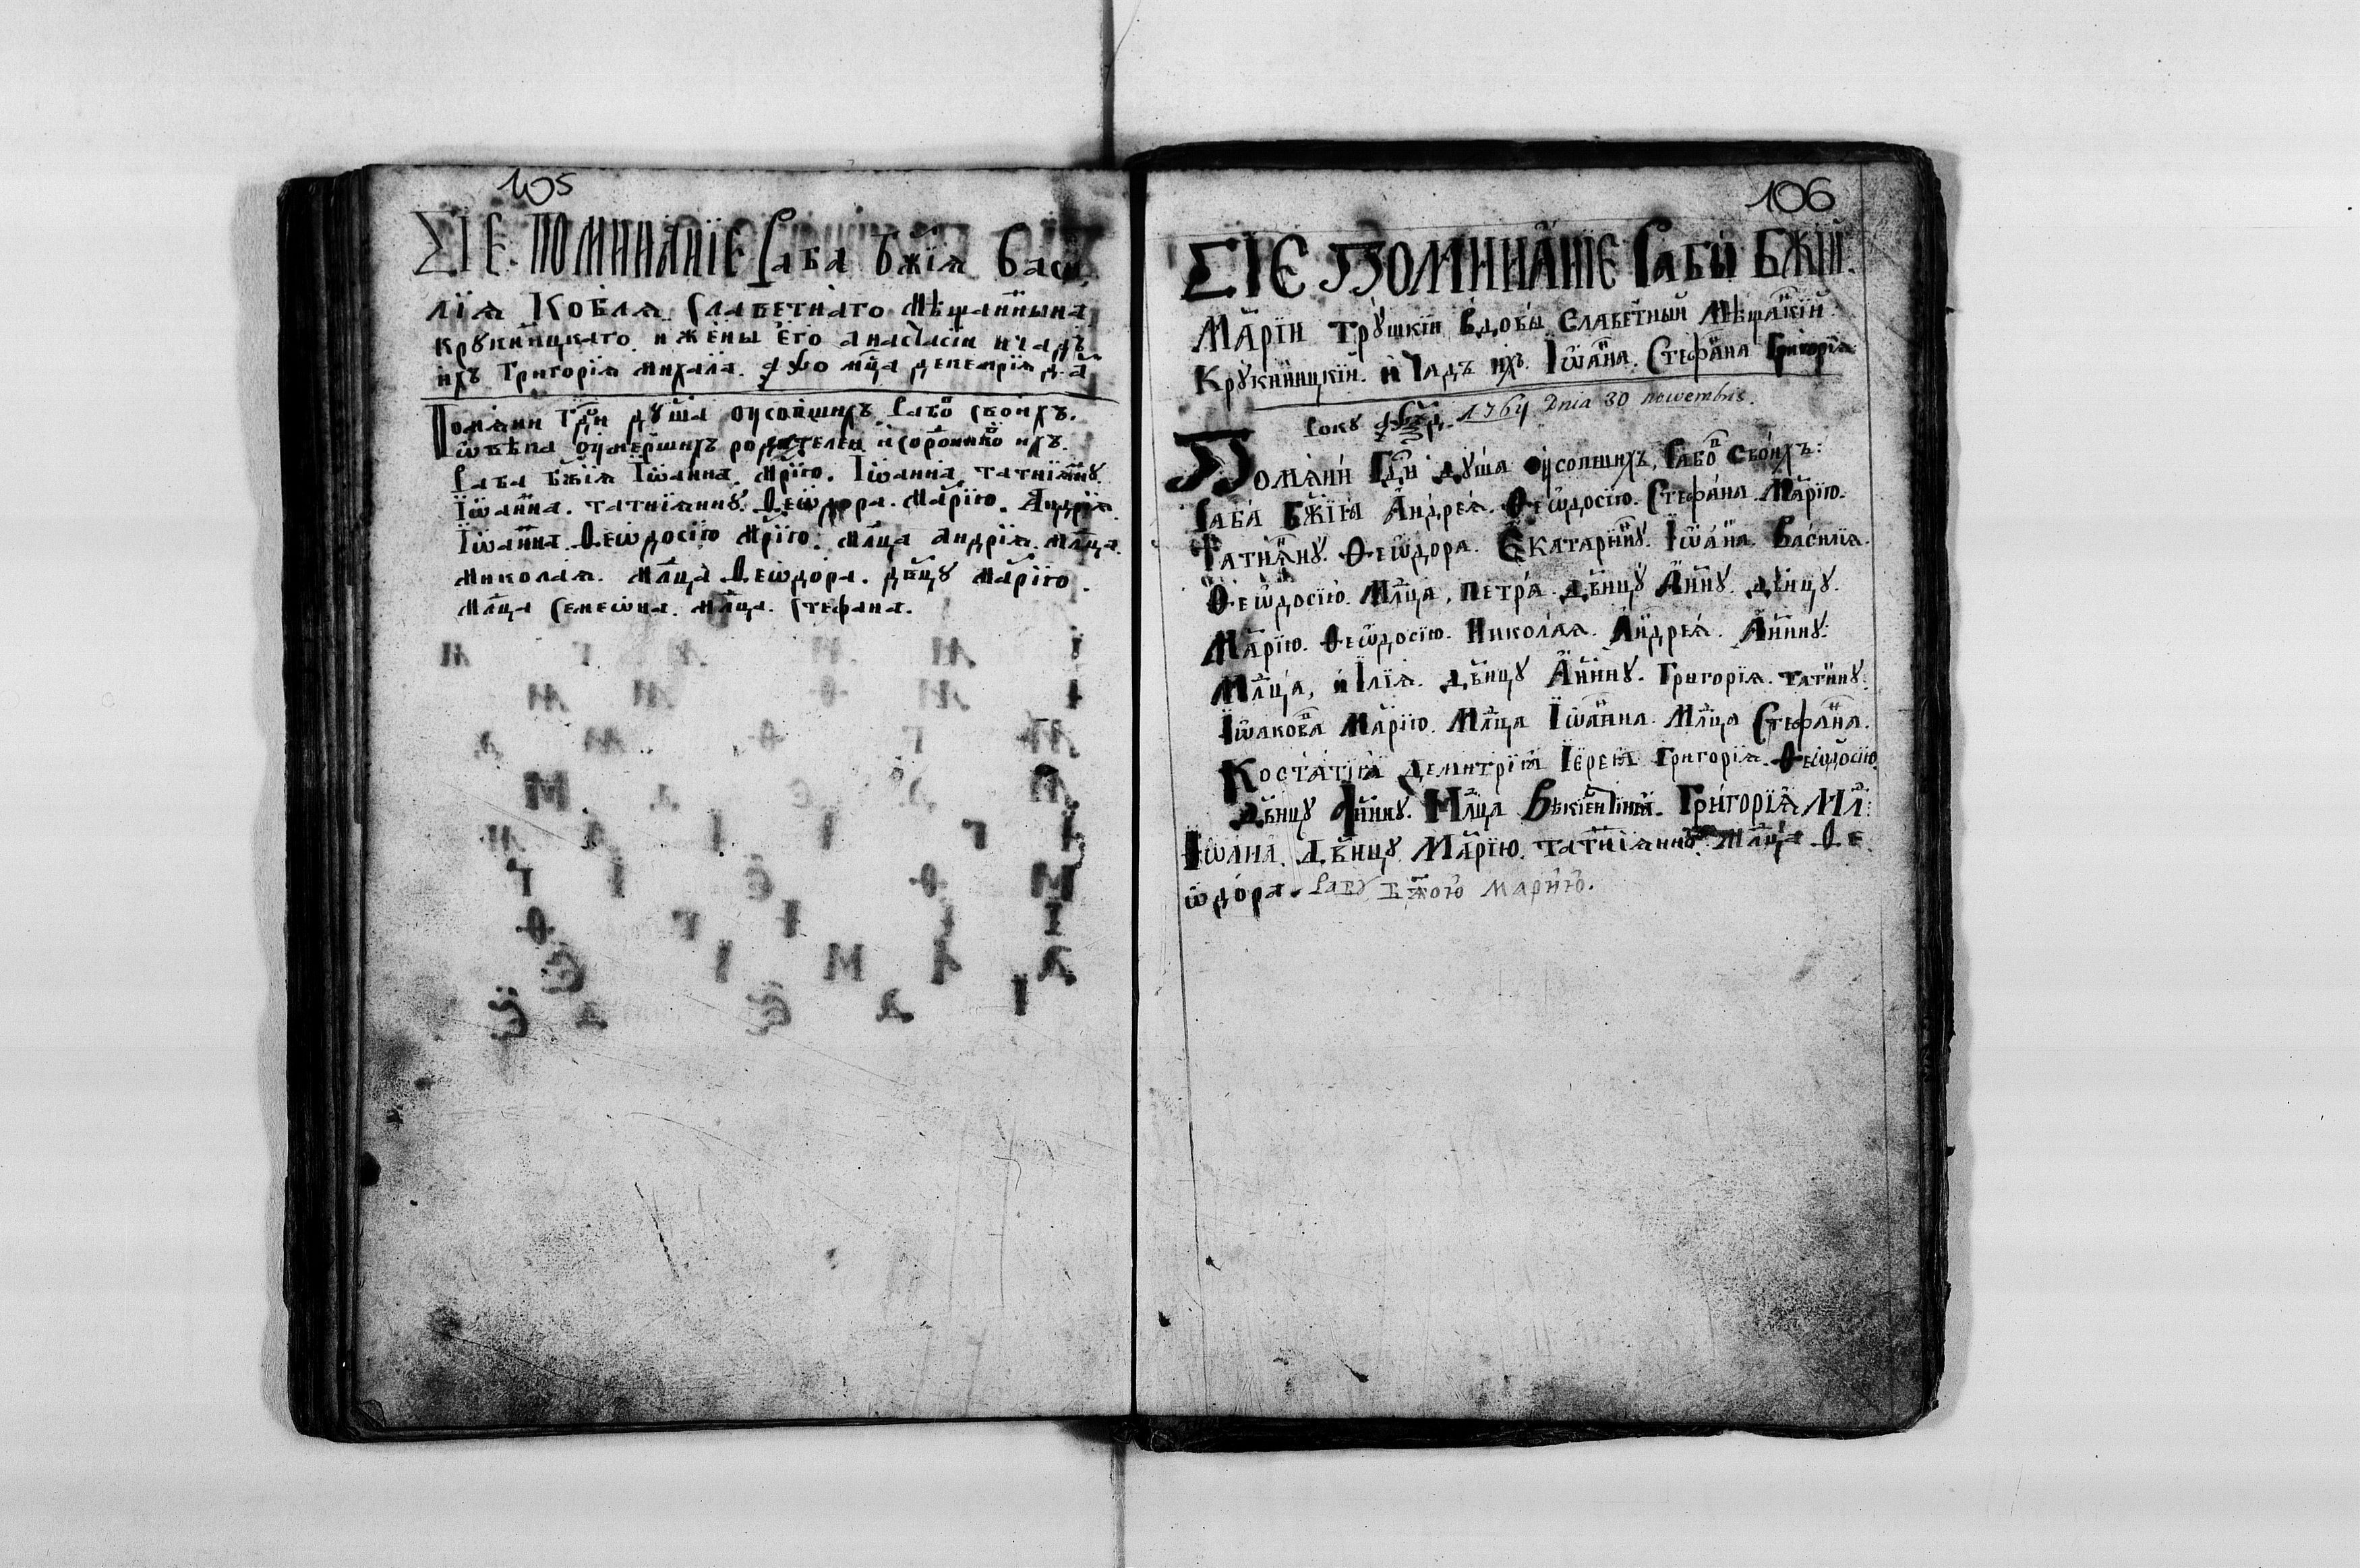 105
СІЄ ПОМИНАНЇЄ Раба Бжїѧ Васи
лїѧ Кобла Славетнаго Мѣщанина
Крукиницкаго и жены Єго Анастасїи и чадъ
ихъ Григорїѧ Михаила. мца декемврїѧ д҃. а
Помѧни Гди душа оусопшихъ Рабо своихъ.
ѿ вѣка оумершихъ родителей и сородниковъ ихъ.
Раба Бжїѧ Іѡанна. Мрїю. Іѡанна. татиїану
Їѡанна. татиїанну. Ѳеѡдора. Марїю. Андрїѧ.
Їѡанна. Ѳеѡдосїю Мрїю. Млца Андрїѧ. Млца
Николаѧ. Млца Ѳеѡдора. двцу Марїю.
Млца Семеѡна. Млца. Стефана.
106
СІЄ ПОМИНАНІЄ Рабы БЖІИ.
Марїи Трушкїи Вдовы Славетныи Мѣщакїи
Крукиницкїи. и Чадъ ихъ. Іѡана. Стефана Григорїѧ
Року 1764 Dnia 30 nowembris.
Помѧни Гди душа оусопшихъ, Рабо своихъ:
Раба Бжїѧ Андреѧ. Ѳеѡдосїю. Стефана. Марїю.
Татиану. Ѳеѡдора. Єкатарину. Їѡана. Василїѧ.
Ѳеѡдосїю. Млца, Петра. двицу Анну. двицу.
Марїю. Ѳеѡдосїю. Николаѧ. Андреѧ. Анну.
Млца, и Їлїѧ. двицу Анну. Григорїѧ. татину.
Їѡакова Марїю. Млца Їѡанна. Млца Стефана.
Костатїѧ Демитрїѧ Їєреѧ Григорїѧ. Ѳеѡдосїю
двицу Анну. Млца Григорїѧ Мл:
Їѡана. двицу Марїю. татиїанну. Млца Ѳе
ѡдора. Рабу Бжою Марию.